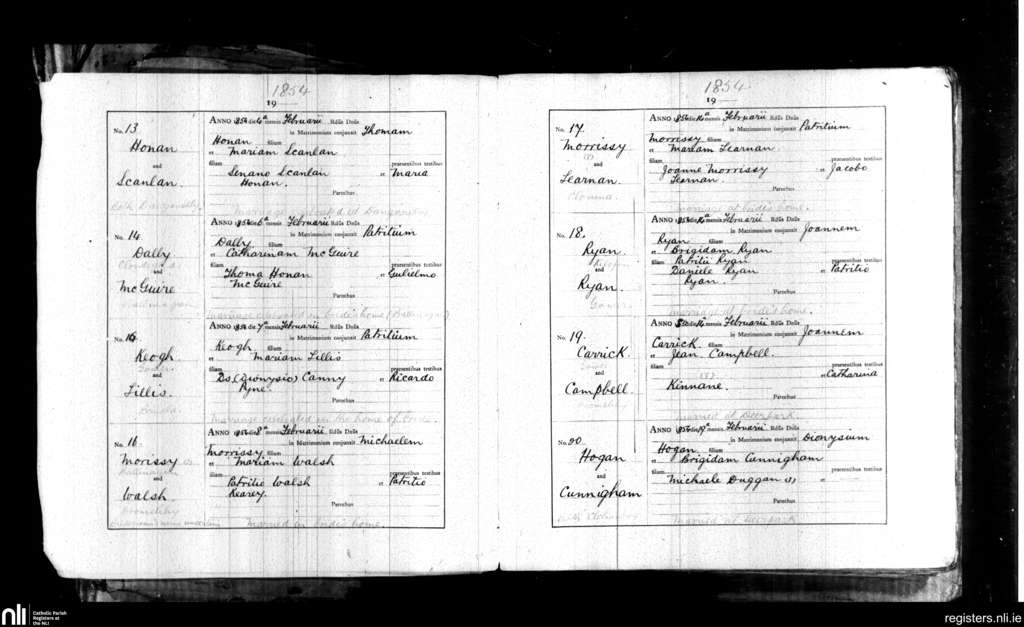 1854
19
No. 13.
Honan
and
Scanlan.
ANNO 1854 die 6a mensis Februarii Rdus Dnus
in Matrimonium conjunxit Thomam
Honan filium
et Mariam Scanlan
filiam praesentibus testibus
Senano Scanlan et Maria
Honan.
Parochus
No. 14.
Dally
and
McGuire
ANNO 1854 die 6a mensis Februarii Rdus Dnus
in Matrimonium conjunxit Patritium
Dally filium
et Catharenam McGuire
filiam praesentibus testibus
Thoma Honan et Gulielmo
McGuire
Parochus
marriage celebrated in bride's home
No. 15.
Keogh
and
Lillis.
ANNO 1854 die 7a mensis Februarii Rdus Dnus
in Matrimonium conjunxit Patritium
Keogh filium
et Mariam Lillis
filiam praesentibus testibus
Ds (Dionysio) Canny et Ricardo
Pyne.
Parochus
Marriage celebrated in the home of
No. 16.
Morissy
and
Walsh
ANNO 1854 die 8a mensis Februarii Rdus Dnus
in Matrimonium conjunxit Michaelem
Morrissy filium
et Mariam Walsh
filiam praesentibus testibus
Patritio Walsh et Patritio
Kearey.
Parochus
Married in bride's home.
1854
19
No. 17.
Morrissy
and
Learnan.
ANNO 1854 die mensis Februarii Rdus Dnus
in Matrimonium conjunxit Patritium
Morrissy filium
et Mariam Learnan.
filiam praesentibus testibus
Joanne Morrissy et Jacobo
Learnan.
Parochus
marriage at bride's home.
No. 18.
Ryan
and
Ryan.
ANNO 1854 die mensis Februarii Rdus Dnus
in Matrimonium conjunxit Joannem
Ryan filium
et Brigidam Ryan
filiam Patritii Ryan praesentibus testibus
Daniele Ryan et Patritio
Ryan.
Parochus
marriage at bride's home.
No. 19.
Carrick
and
Campbell.
ANNO die mensis Februarii Rdus Dnus
in Matrimonium conjunxit Joannem
Carrick filium
et Jean Campbell.
filiam praesentibus testibus
et Catharina
Kinnane.
Parochus
married at Deerpark.
No. 20.
Hogan
and
Cunnigham
ANNO die mensis Februarii Rdus Dnus
in Matrimonium conjunxit Dionysium
Hogan filium
et Brigidam Cunnigham
filiam praesentibus testibus
Michaele Duggan et
Parochus
Married at Deerpark
nli
Catholic Parish
Registers at
the NLI
registers.nli.ie